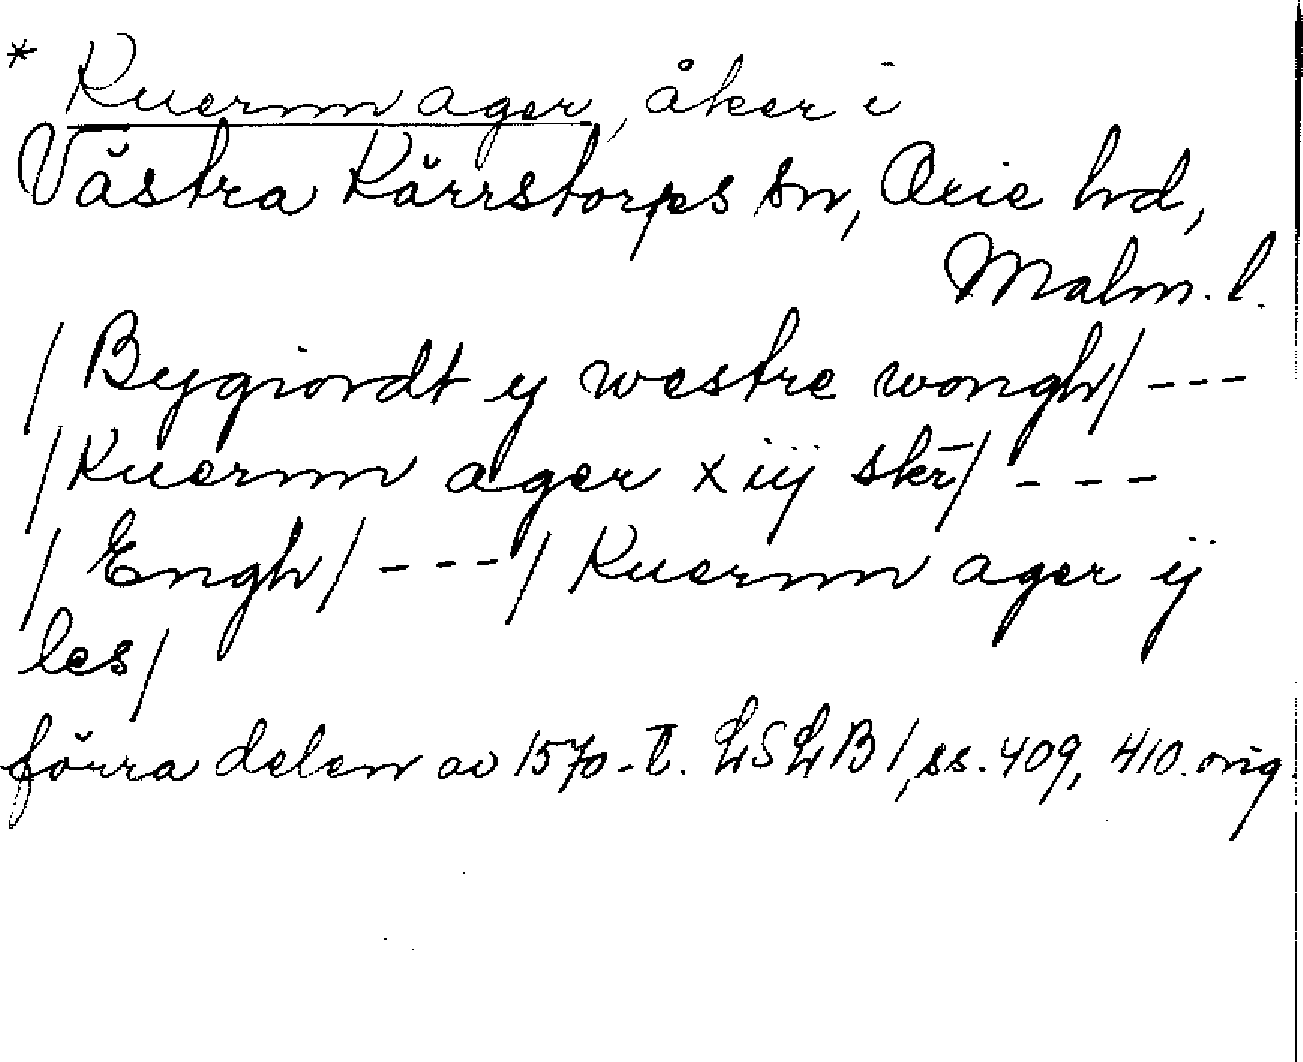 * Kuernn ager, åker i
Västra Kärrstorps sn, Oxie hd,
Malm. l.
/ Bygiordt y westre wongh / ---
/ Kuernn ager x iij skr̄ / ---
/ Engh / --- / Kuernn ager ij
les /
förra delen av 1570-t. LSLB 1, ss. 409, 410. orig.